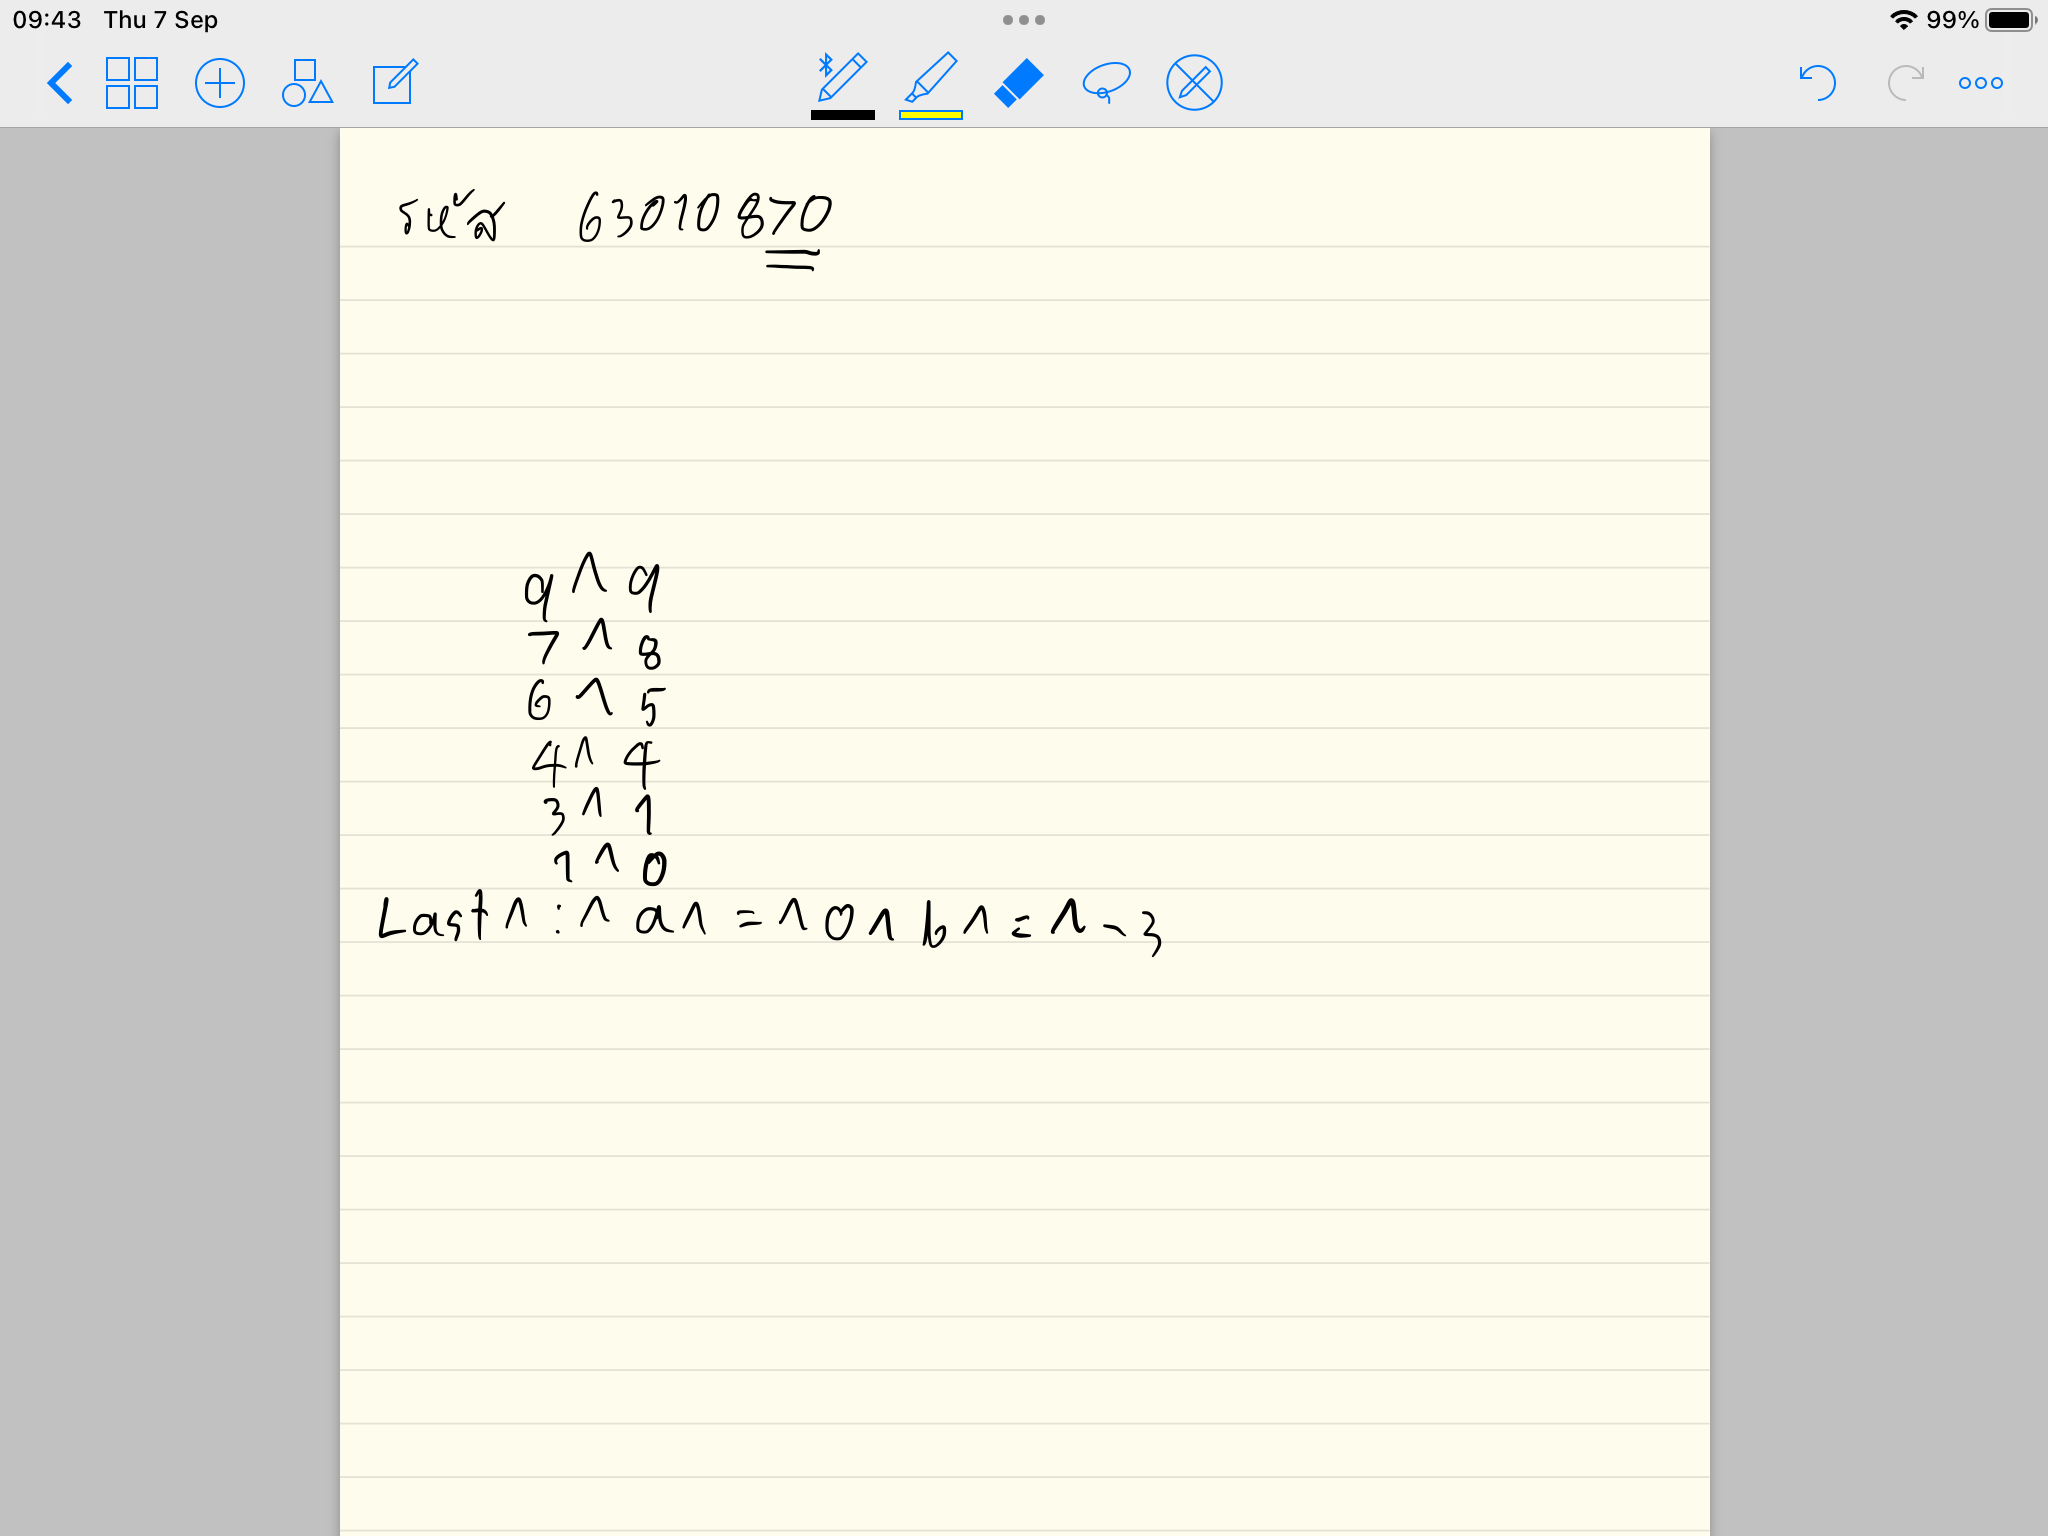 09:43 Thu 7 Sep 99%
รหัส 63010870
9 ^ 9
7 ^ 8
6 ^ 5
4 ^ 4
3 ^ 1
1 ^ 0
Last ^ : ^ a ^ = ^ 0 ^ b ^ = ^ - 3